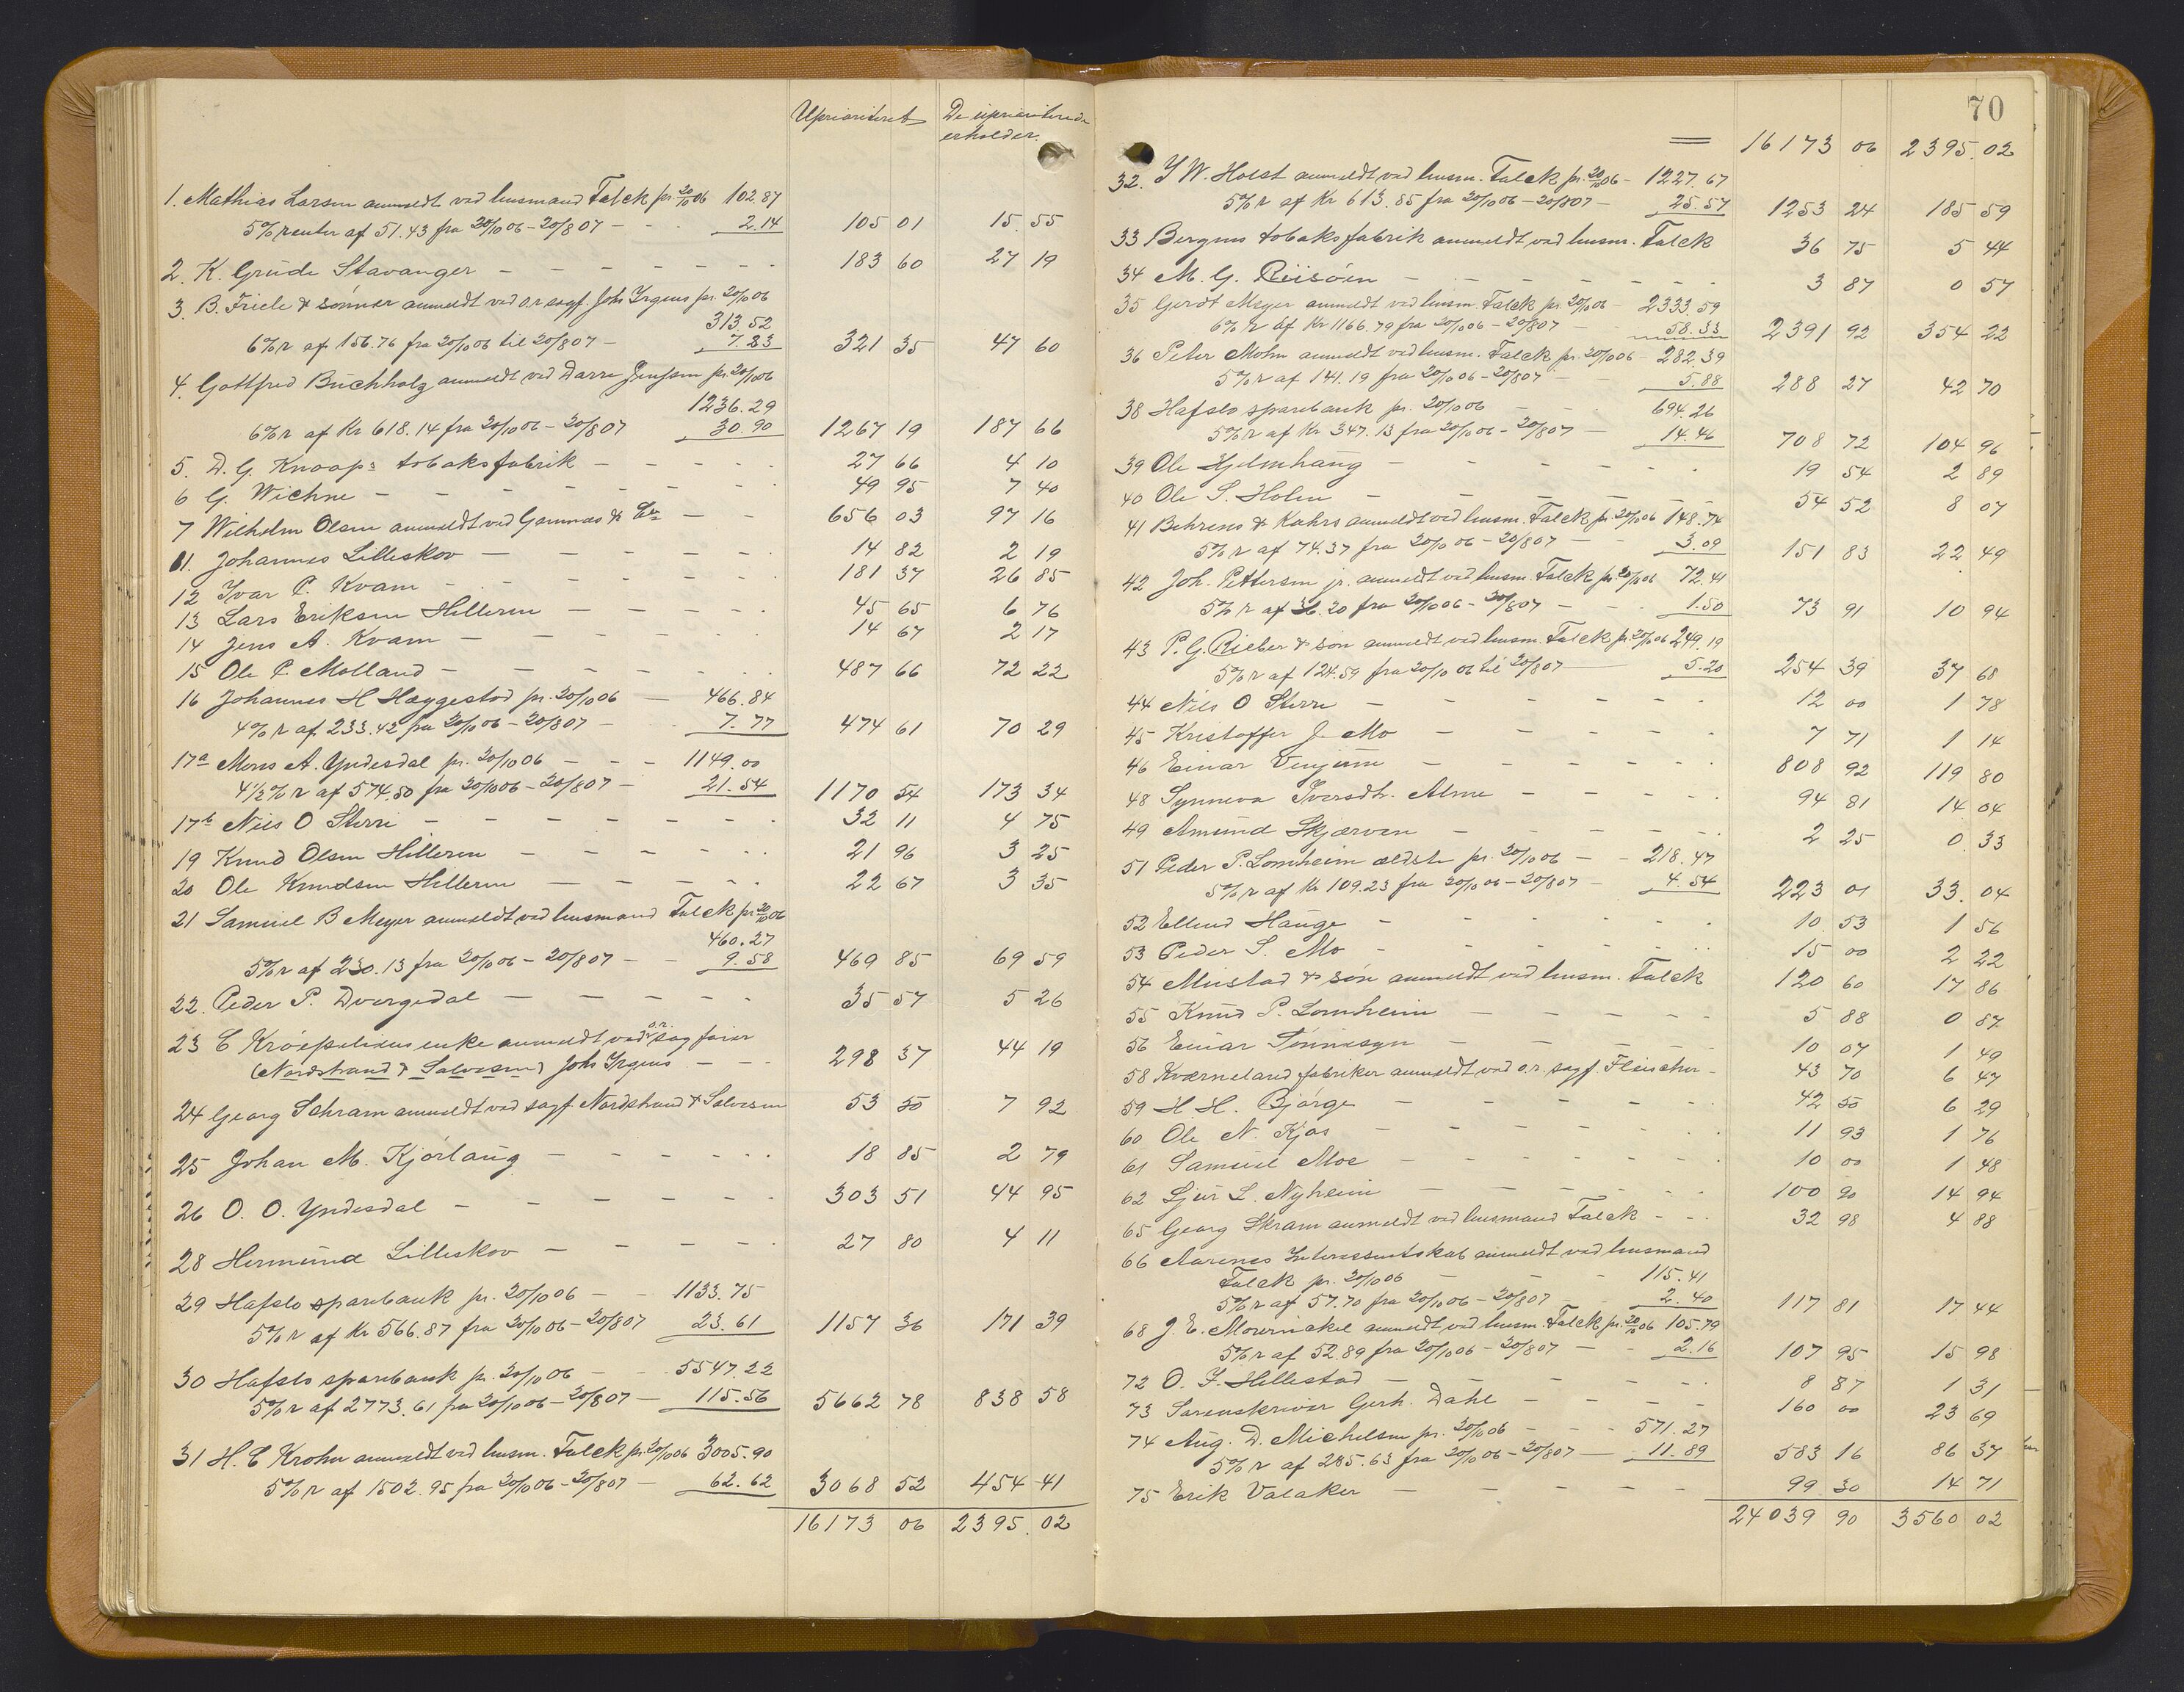 Uprioriteret De uprioriterede
erholder.
1. Mathias Larsen anmeldt ved husmand Falck pr. 20/10 06 102.87
5% renter af 51.43 fra 20/10 06 - 20/8 07 - 2.14 105 01 15.55
2. K. Grude Stavanger - 183 60 27 19
3. B. Friele & sønner anmeldt ved o.r.sagf. Johs Irgens pr. 20/10 06
313.52
6% r af 156.76 fra 20/10 06 til 20/8 07 - 7.83 321 35 47 60
4. Gottfred Buchholz anmeldt ved Darre Jenssen pr 20/10 06
1236.29
6% r af Kr 618.14 fra 20/10 06 - 20/8 07 30.90 1267 19 187 66
5. D. G. Knoops tobaksfabrik - 27 66 4 10
6 G. Wichne - 49 95 7 40
7 Wilhelm Olsen anmeldt ved Gammas & Co - 656 03 97 16
11. Johannes Lilleskov - 14 82 2 19
12 Ivar P. Kvam - 181 37 26 85
13 Lars Eriksen Hilleren - 45 65 6 76
14 Jens A. Kvam - 14 67 2 17
15 Ole P. Molland - 487 66 72 22
16 Johannes H Hæggestad pr. 20/10 06 - 466.84
4% r af 233.42 fra 20/10 06 - 20/8 07 - 7.77 474 61 70 29
17a Mons A. Yndesdal pr. 20/10 06 - 1149.00
4 1/2 % r af 574.50 fra 20/10 06 - 20/8 07 - 21.54 1170 54 173 34
17b Nils O Sterri - 32 11 4 75
19 Knud Olsen Hilleren - 21 96 3 25
20 Ole Knudsen Hilleren - 22 67 3 35
21 Samuel B Meyer anmeldt ved husmand Falck pr 20/10 06
460.27
5% r af 230.13 fra 20/10 06 - 20/8 07 - 9.58 469 85 69 59
22. Peder P. Dvergedal - 35 57 5 26
23 C Krøepelins enke anmeldt ved o.r. sagfører
(Nordstrand & Salvesen) Johs Irgens - 298 37 44 19
24 Georg Schram anmeldt ved sagf. Nordstrand & Salvesen 53 50 7 92
25 Johan M. Kjørlaug - 18 85 2 79
26 O. O. Yndesdal - 303 51 44 95
28 Hermund Lilleskov - 27 80 4 11
29 Hafslo sparebank pr. 20/10 06 - 1133.75
5% r af Kr 566.87 fra 20/10 06 - 20/8 07 23.61 1157 36 171 39
30 Hafslo sparebank pr. 20/10 06 - 5547.22
5% r af 2773.61 fra 20/10 06 - 20/8 07 - 115.56 5662 78 838 58
31 H. C Krohn anmeldt ved husm. Falck pr. 20/10 06 3005.90
5% r af 1502.95 fra 20/10 06 - 20/8 07 - 62.62 3068 52 454 41
16173 06 2395.02
70
16173 06 2395.02
32. J W. Holst anmeldt ved husm. Falck pr. 20/10 06 - 1227.67
5% r af Kr 613.85 fra 20/10 06 - 20/8 07 - 25.57 1253 24 185 59
33 Bergens tobaksfabrik anmeldt ved husm. Falck 36 75 5 44
34 M. G. Riisøen - 3 87 0 57
35 Gerdt Meyer anmeldt ved husm. Falck pr. 20/10 06 - 2333.59
6% r af Kr 1166.79 fra 20/10 06 - 20/8 07 - 58.33 2391 92 354 22
36 Peter Mohn anmeldt ved husm. Falck pr. 20/10 06 - 282.39
5% r af 141.19 fra 20/10 06 - 20/8 07 - 5.88 288 27 42 70
38 Hafslo sparebank pr. 20/10 06 - 694.26
5% r af Kr 347.13 fra 20/10 06 - 20/8 07 - 14.46 708 72 104 96
39 Ole Hjelmhaug - 19 54 2 89
40 Ole S. Holen - 54 52 8 07
41 Behrens & Kahrs anmeldt ved husm. Falck pr. 20/10 06 148.74
5% r af 74.37 fra 20/10 06 - 20/8 07 - 3.09 151 83 22 49
42 Joh. Pettersen jr. anmeldt ved husm. Falck pr 20/10 06 72.41
5% r af 36.20 fra 20/10 06 - 20/8 07 - 1.50 73 91 10 94
43 P. G. Rieber & søn anmeldt ved husm. Falck pr. 20/10 06 249.19
5% r af 124.59 fra 20/10 06 til 20/8 07 - 5.20 254 39 37 68
44 Nils O Sterri - 12 00 1 78
45 Kristoffer J. Mo - 7 71 1 14
46 Einar Venjum - 808 92 119 80
48 Synneva Iversdtr. Alme - 94 81 14 04
49 Amund Skjærven - 2 25 0.33
51 Peder P. Lomheim ældste pr. 20/10 06 - 218.47
5% r af Kr 109.23 fra 20/10 06 - 20/8 07 - 4.54 223 01 33.04
52 Ellend Hauge - 10 53 1 56
53 Peder S. Mo - 15 00 2 22
54 Mustad & søn anmeldt ved husm. Falck 120 60 17 86
55 Knud P. Lomheim - 5 88 0 87
56 Einar Tønnesyn - 10 07 1 49
58 Kværneland fabriker anmeldt ved o.r. sagf. Fleischer - 43 70 6 47
59 H. H. Bjørge - 42 50 6 29
60 Ole N. Kjos - 11 93 1 76
61 Samuel Moe - 10 00 1 48
62 Sjur L. Nyheim - 100 90 14 94
65 Georg Skram anmeldt ved husmand Falck - 32 98 4 88
66 Aarenes Interessentskab anmeldt ved husmand
Falck pr. 20/10 06 - 115.41
5% r af 57.70 fra 20/10 06 - 20/8 07 2.40 117 81 17 44
68 J. E. Mowinckel anmeldt ved husm. Falck pr. 20/10 06 105.79
5% r af 52.89 fra 20/10 06 - 20/8 07 - 2.16 107 95 15 98
72 O. J. Hillestad - 8 87 1 31
73 Sorenskriver Gerh. Dahl - 160 00 23 69
74 Aug. D. Michelsen pr. 20/10 06 - 571.27
5% r af 285.63 fra 20/10 06 - 20/8 07 - 11.89 583 16 86 37
75 Erik Valaker - 99 30 14 71
24039 90 3560 02